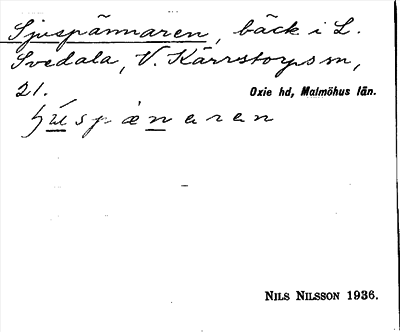 Sjuspännaren, bäck i L.
Svedala, V. Kärrstorps sn,
21. Oxie hd, Malmöhus län.
spænaren
NILS NILSSON 1936.